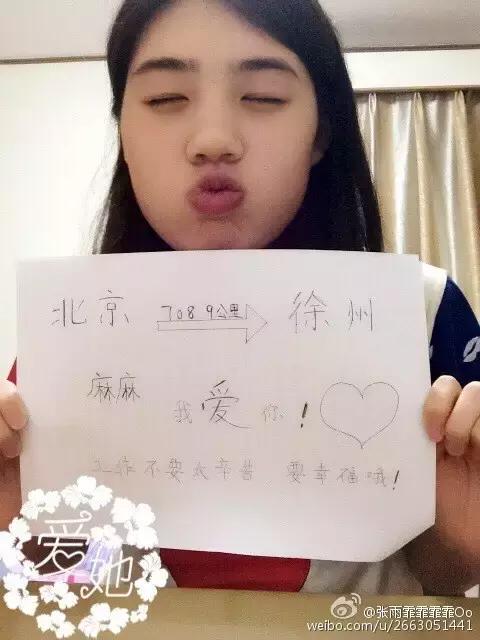 北京 708.9公里 徐州
麻麻 我爱你！
工作不要太辛苦 要幸福哦！
爱她
@张雨霏霏霏霏Oo
weibo.com/u/2663051441